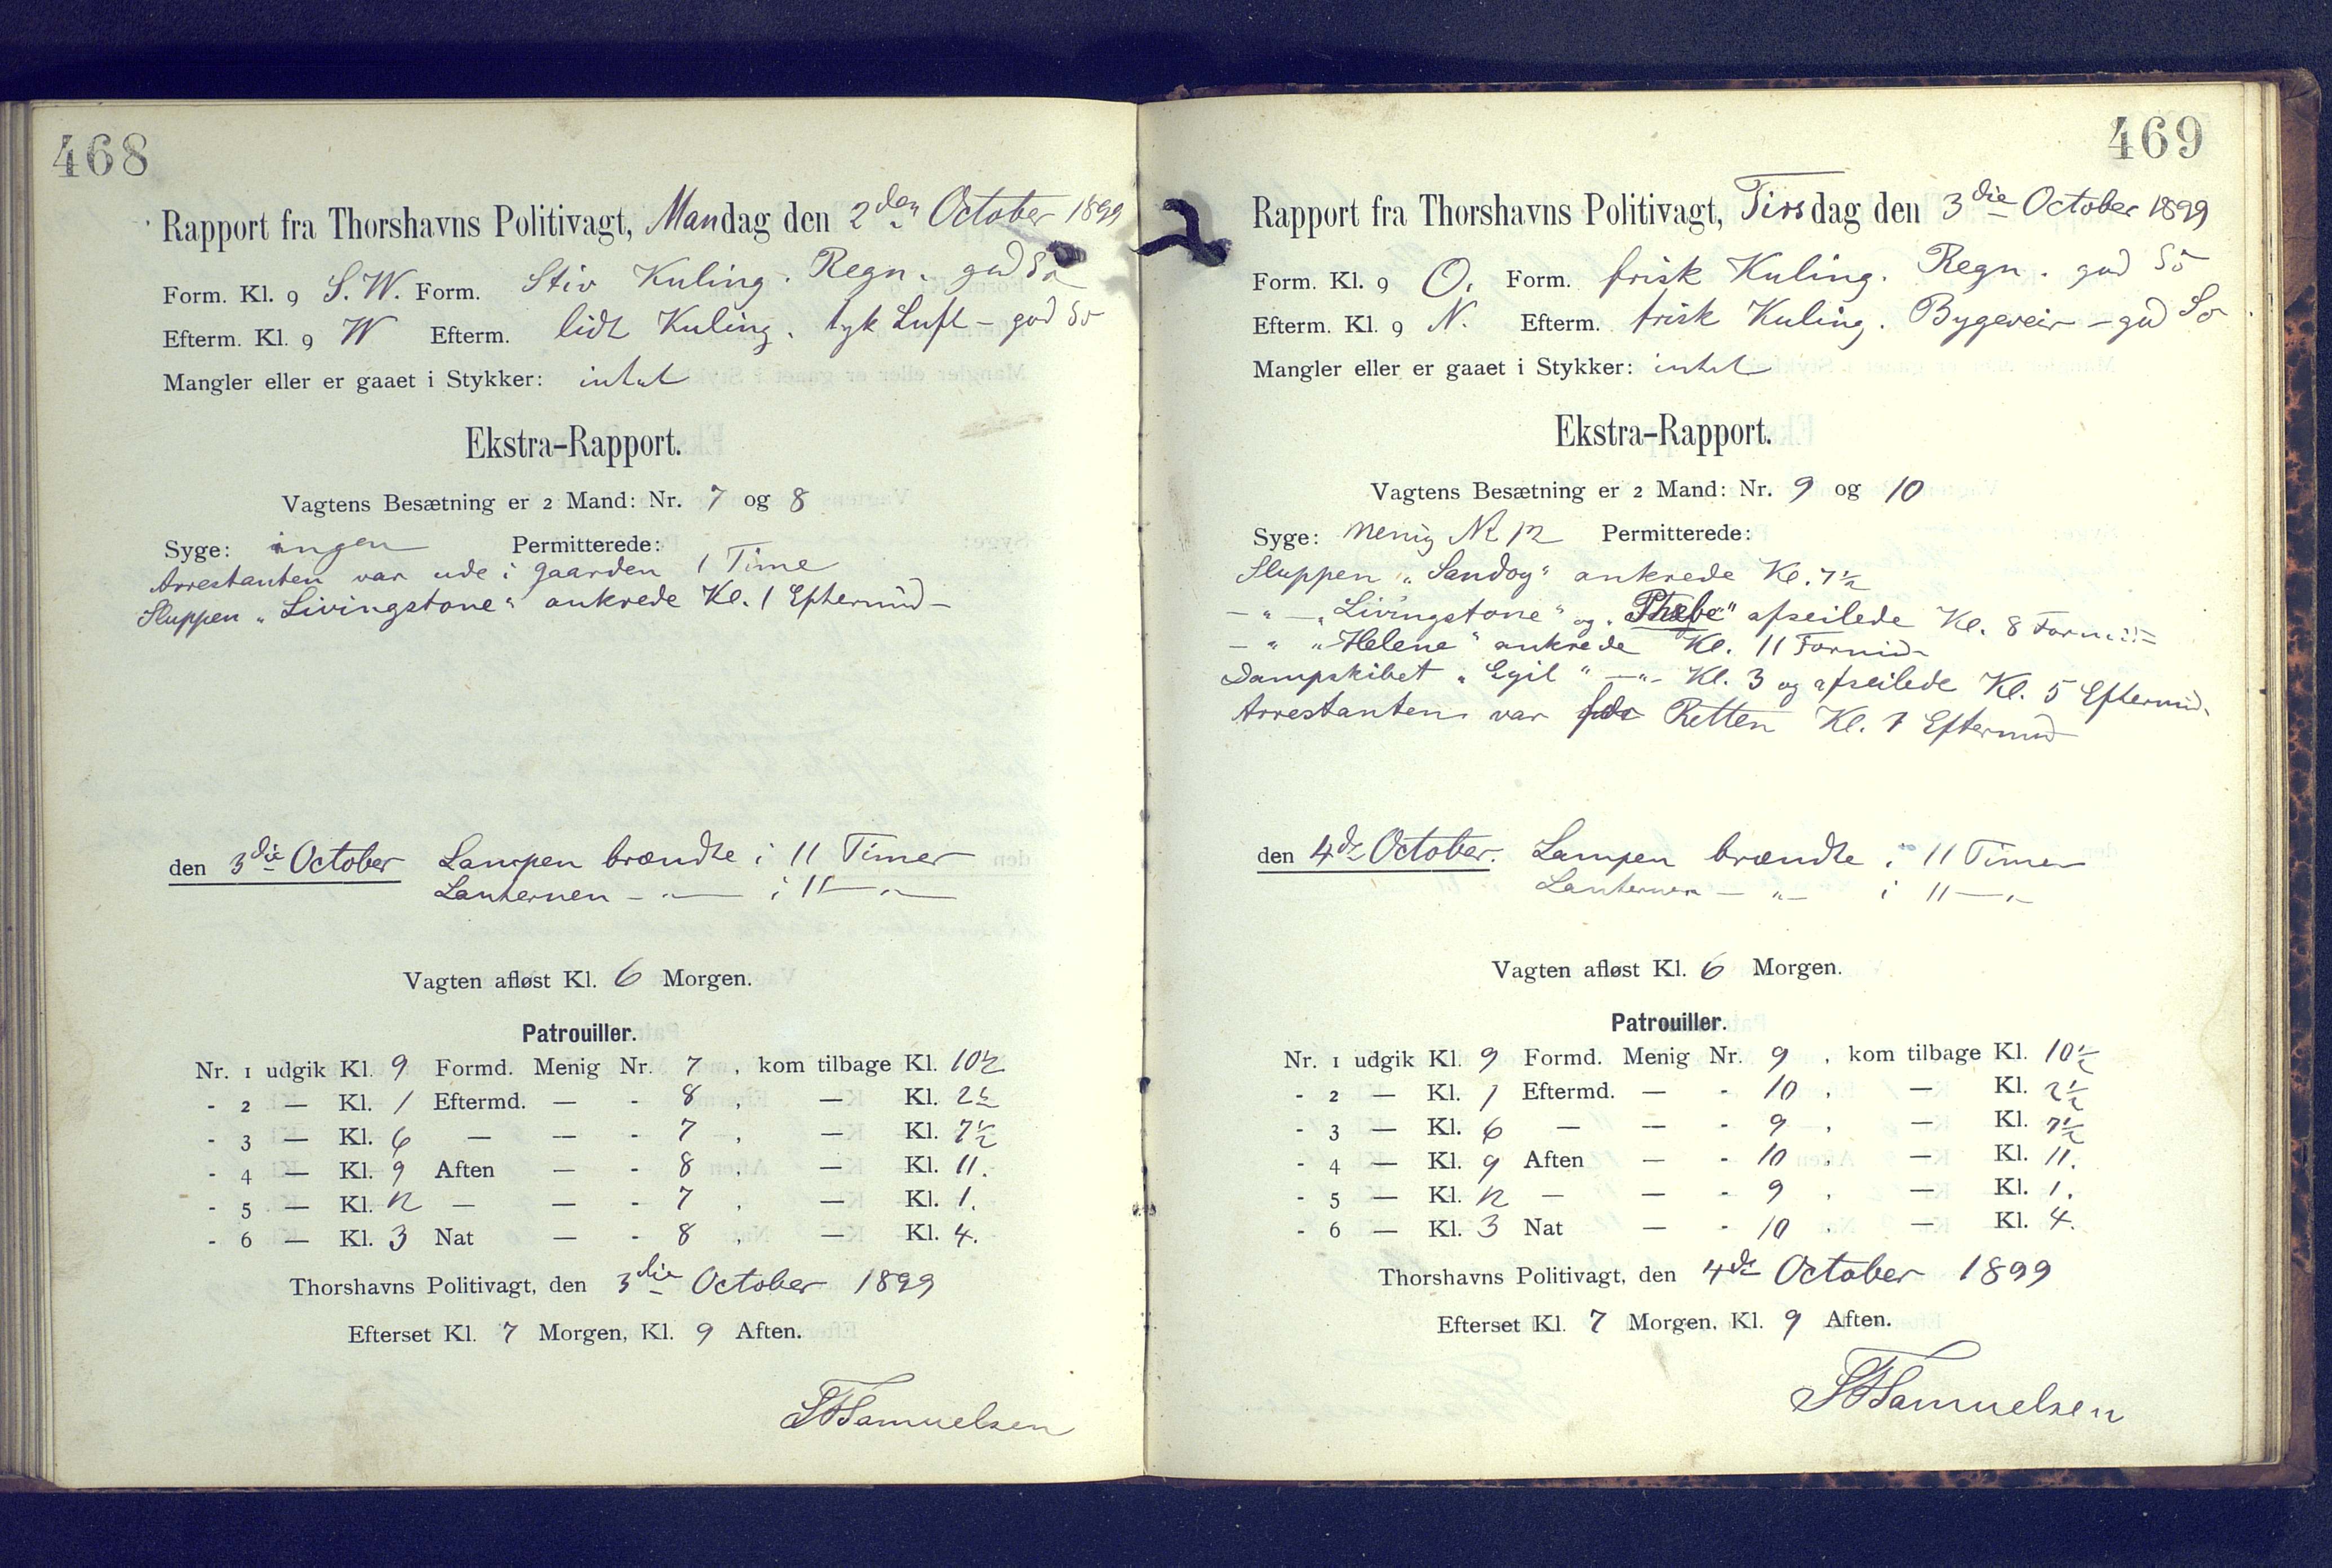 468
Rapport fra Thorshavns Politivagt, Mandag den 2den October 1899
Form. Kl. 9 S.W. Form. Stiv Kuling. Regn. god Sö
Efterm. Kl. 9 W Efterm. lidt Kuling. tyk Luft - god Sö
Mangler eller er gaaet i Stykker: intet
Ekstra-Rapport.
Vagtens Besætning er 2 Mand: Nr. 7 og 8
Syge: ingen Permitterede:
Arrestanten var ude i Gaarden 1 Time
Sluppen „Livingstone" ankrede Kl. 1 Eftermid-
den 3die October Lampen brændte i 11 Timer
Lanternen - " - i 11 - " -
Vagten afløst Kl. 6 Morgen.
Patrouiller.
Nr. 1 udgik Kl. 9 Formd. Menig Nr. 7 , kom tilbage Kl. 10½
- 2 — Kl. 1 Eftermd. — - 8 , — Kl. 2½
- 3 — Kl. 6 — — - 7 , — Kl. 7½
- 4 — Kl. 9 Aften — - 8 , — Kl. 11.
- 5 — Kl. 12 — — - 7 , — Kl. 1.
- 6 — Kl. 3 Nat — - 8 , — Kl. 4.
Thorshavns Politivagt, den 3die October 1899
Efterset Kl. 7 Morgen, Kl. 9 Aften.
Samuelsen
469
Rapport fra Thorshavns Politivagt, Tirsdag den 3die October 1899
Form. Kl. 9 O. Form. frisk Kuling. Regn. god Sö
Efterm. Kl. 9 N. Efterm. frisk Kuling. Bygeveir - god Sö
Mangler eller er gaaet i Stykker: intet
Ekstra-Rapport.
Vagtens Besætning er 2 Mand: Nr. 9 og 10
Syge: Menig Nr 12 Permitterede:
Sluppen „Sandoy" ankrede Kl. 7½
- " - „Livingstone" og „Phøbe" afseilede Kl. 8 Formid-
- " „Helene" ankrede Kl. 11 Formid-
Dampskibet „Egil" - " - Kl. 3 og afseilede Kl. 5 Eftermid.
Arrestanten var Retten Kl. 7 Eftermid
den 4de October. Lampen brændte i 11 Timer
Lanternen - " - i 11 - " -
Vagten afløst Kl. 6 Morgen.
Patrouiller.
Nr. 1 udgik Kl. 9 Formd. Menig Nr. 9 , kom tilbage Kl. 10½
- 2 — Kl. 1 Eftermd. — - 10 , — Kl. 2½
- 3 — Kl. 6 — — - 9 , — Kl. 7½
- 4 — Kl. 9 Aften — - 10 , — Kl. 11.
- 5 — Kl. 12 — — - 9 , — Kl. 1.
- 6 — Kl. 3 Nat — - 10 , — Kl. 4.
Thorshavns Politivagt, den 4de October 1899
Efterset Kl. 7 Morgen, Kl. 9 Aften.
Samuelsen